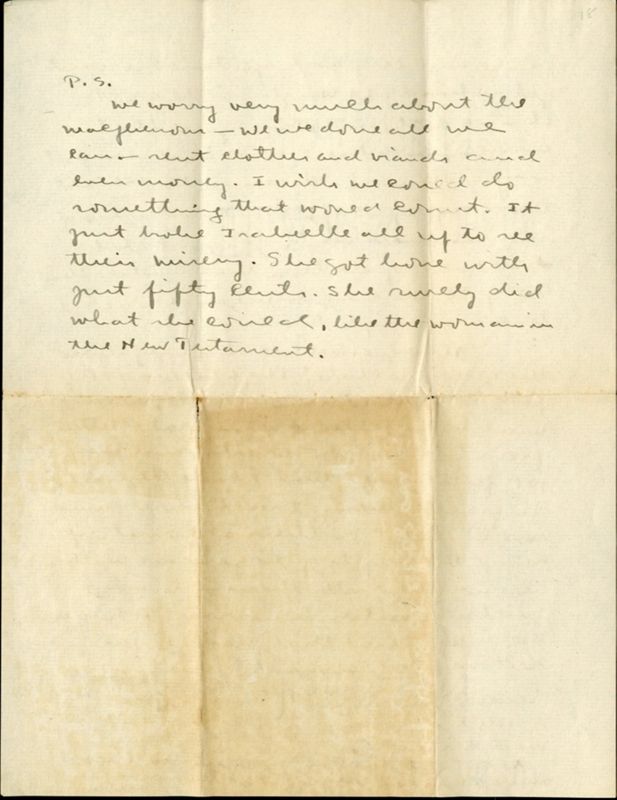 18
P.S.
We worry very much about the
Macphersons — we've done all we
can — sent clothes and viands and
even money. I wish we could do
something that would count. It
just broke Isabelle all up to see
their misery. She got home with
just fifty cents. She surely did
what she could, like the woman in
the New Testament.